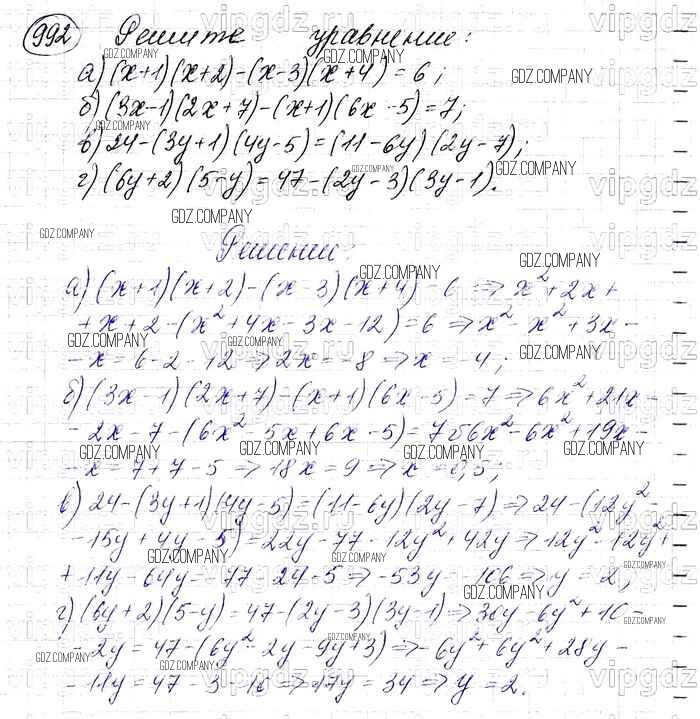 992 Решите уравнение:
а) (x+1)(x+2)-(x-3)(x+4)=6;
б) (3x-1)(2x+7)-(x+1)(6x-5)=7;
в) 24-(3y+1)(4y-5)=(11-6y)(2y-7);
г) (6y+2)(5-y)=47-(2y-3)(3y-1).
Решение:
а) (x+1)(x+2)-(x-3)(x+4) 6 => x²+2x+
+x+2-(x²+4x-3x-12)=6 => x²-x²+3x-
-x=6-2-12 => 2x=-8 => x=-4;
б) (3x-1)(2x+7)-(x+1)(6x-5)=7 => 6x²+21x-
-2x-7-(6x²-5x+6x-5)=7 6x²-6x²+19x-
-x=7+7-5 => 18x=9 => x=0,5;
в) 24-(3y+1)(4y-5)=(11-6y)(2y-7) => 24-(12y²-
-15y+4y-5)=22y-77-12y²+42y => 12y²-12y²+
+11y-64y=-77-24-5 => -53y=-106 => y=2;
г) (6y+2)(5-y)=47-(2y-3)(3y-1) => 30y-6y²+10-
-2y=47-(6y²-2y-9y+3) => -6y²+6y²+28y-
-11y=47-3-10 => 17y=34 => y=2.
GDZ.COMPANY
vipgdz.ru